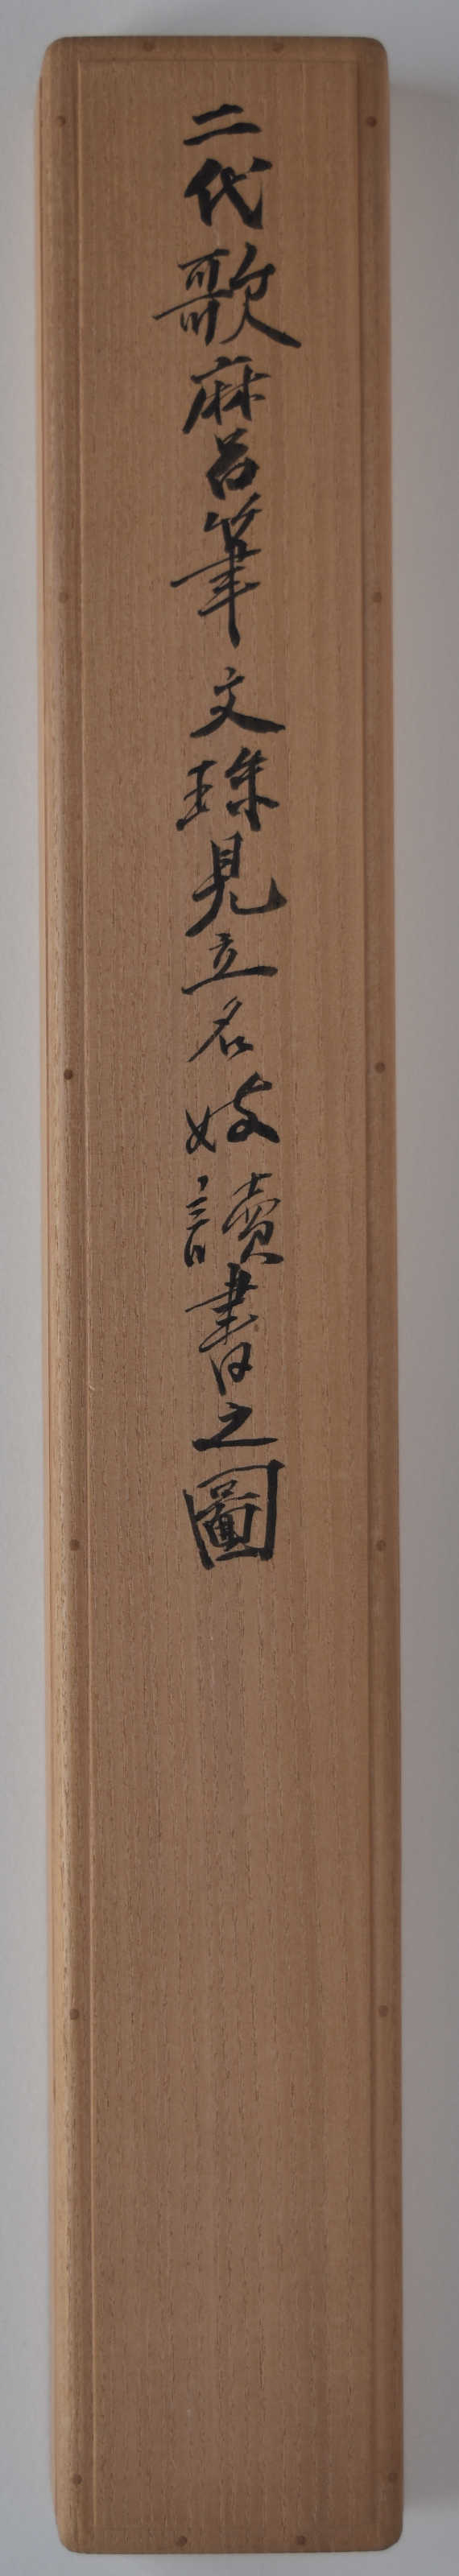 二代歌麿筆 文珠見立名妓讀書之圖